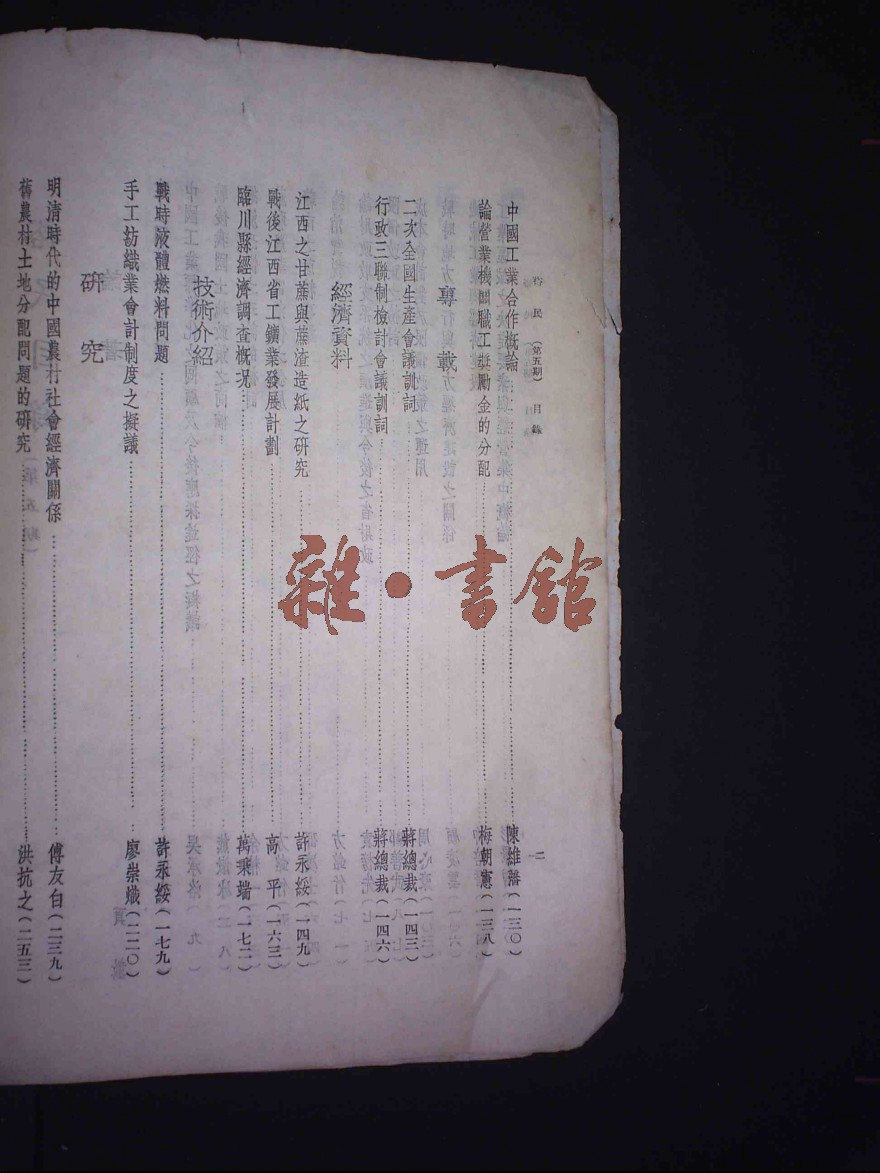 民 (第五期) 目錄
二
中國工業合作概論……陳維驎(一三〇)
論營業機關職工獎勵金的分配……梅朝憲(一三八)
專載
二次全國生產會議訓詞……蔣總裁(一四三)
行政三聯制檢討會議訓詞……蔣總裁(一四六)
經濟資料
江西之甘蔗與蔗渣造紙之研究……許永綏(一四九)
戰後江西省工鑛業發展計劃……高平(一六三)
臨川縣經濟調查概况……萬乘端(一七二)
技術介紹
戰時液體燃料問題……許永綏(一七九)
手工紡織業會計制度之擬議……廖崇熾(二二〇)
研究
明清時代的中國農村社會經濟關係……傅友白(二三九)
舊農村土地分配問題的研究……洪抗之(二五三)
雜·書館